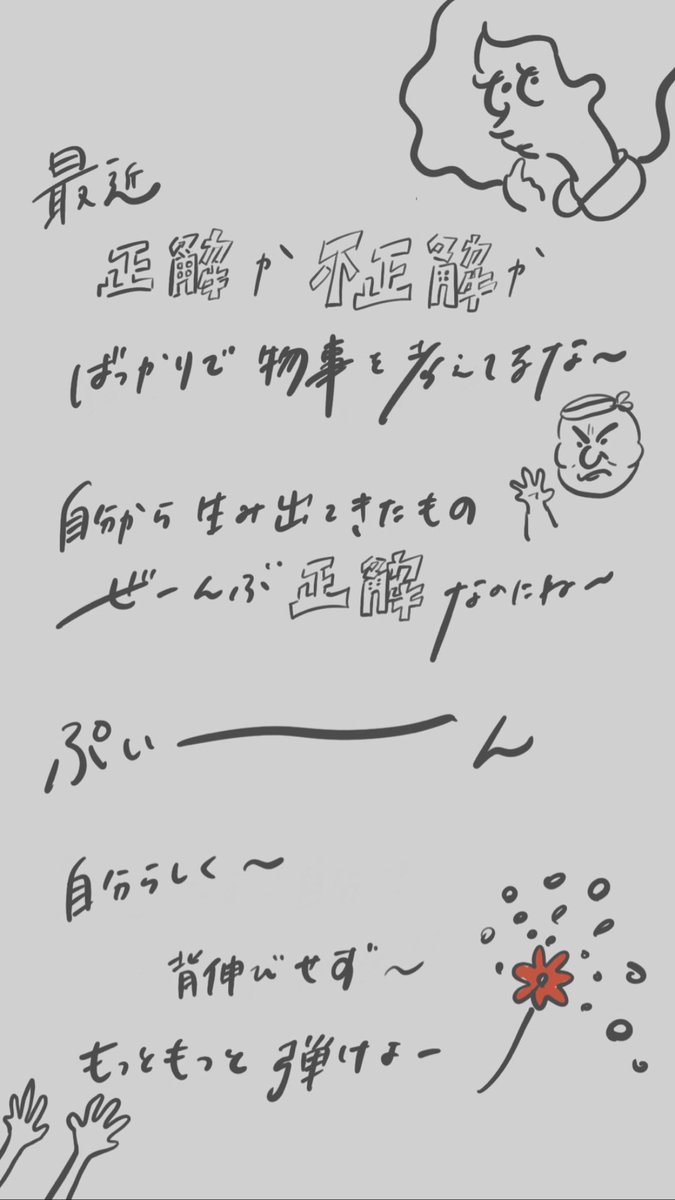 最近
正解か不正解か
ばっかりで物事を考えてるな〜
自分から生み出てきたもの
ぜーんぶ正解なのにね〜
ぷぃーーん
自分らしく〜
背伸びせず〜
もっともっと弾けよー